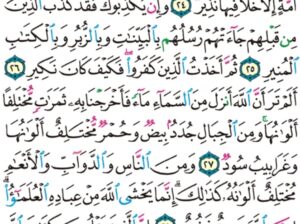 أُمَّةٍ إِلَّا خَلَا فِيهَا نَذِيرٌ ٢٤ وَإِن يُكَذِّبُوكَ فَقَدْ كَذَّبَ الَّذِينَ
مِن قَبْلِهِمْ جَاءَتْهُمْ رُسُلُهُم بِالْبَيِّنَاتِ وَبِالزُّبُرِ وَبِالْكِتَابِ
الْمُنِيرِ ٢٥ ثُمَّ أَخَذْتُ الَّذِينَ كَفَرُوا فَكَيْفَ كَانَ نَكِيرِ ٢٦
أَلَمْ تَرَ أَنَّ اللَّهَ أَنزَلَ مِنَ السَّمَاءِ مَاءً فَأَخْرَجْنَا بِهِ ثَمَرَاتٍ مُّخْتَلِفًا
أَلْوَانُهَا وَمِنَ الْجِبَالِ جُدَدٌ بِيضٌ وَحُمْرٌ مُّخْتَلِفٌ أَلْوَانُهَا
وَغَرَابِيبُ سُودٌ ٢٧ وَمِنَ النَّاسِ وَالدَّوَابِّ وَالْأَنْعَامِ
مُخْتَلِفٌ أَلْوَانُهُ كَذَلِكَ إِنَّمَا يَخْشَى اللَّهَ مِنْ عِبَادِهِ الْعُلَمَاءُ